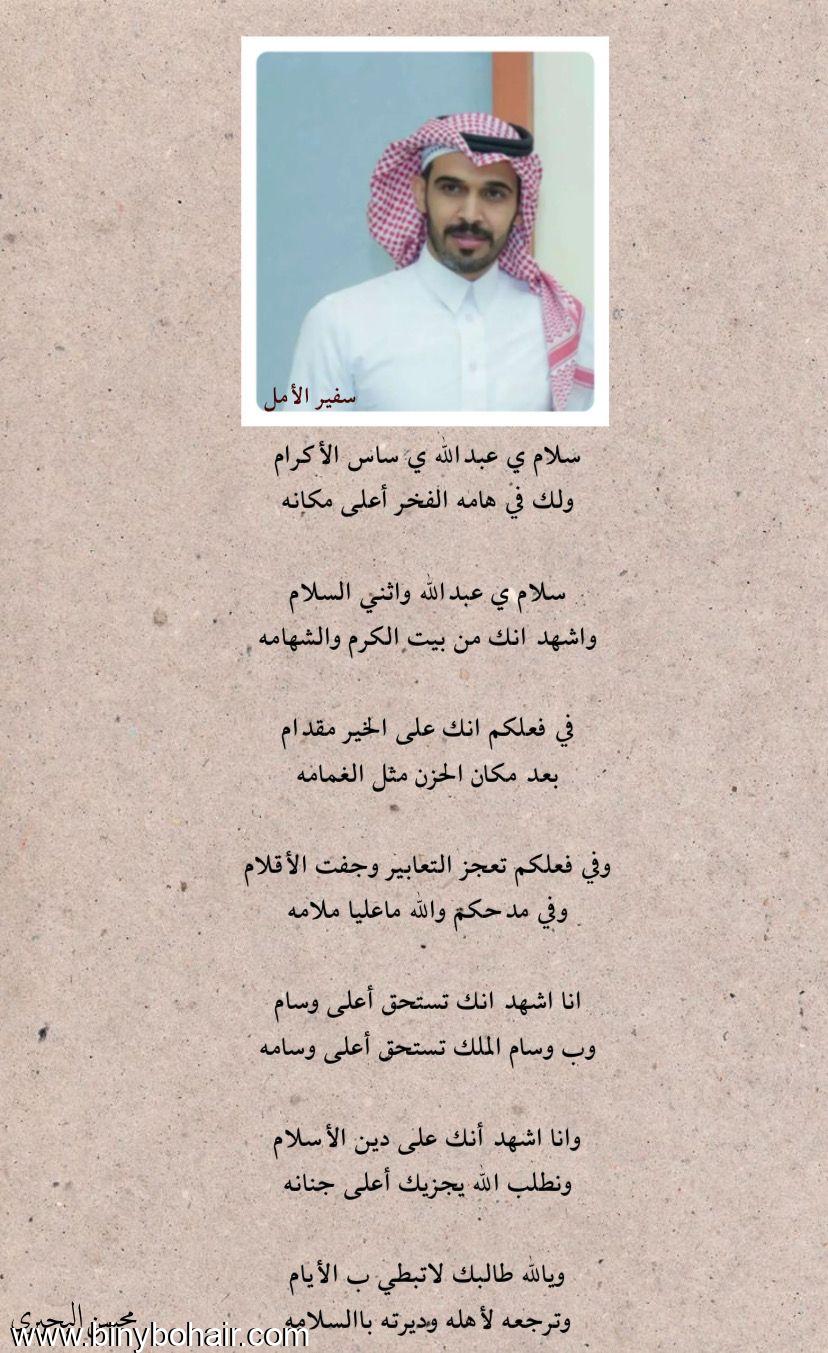 سفير الأمل
سلام ي عبدالله ي ساس الأكرام
ولك في هامه الفخر أعلى مكانه
سلام ي عبدالله واثني السلام
واشهد انك من بيت الكرم والشهامه
في فعلكم انك على الخير مقدام
بعد مكان الحزن مثل الغمامه
وفي فعلكم تعجز التعابير وجفت الأقلام
وفي مدحكم والله ماعليا ملامه
انا اشهد انك تستحق أعلى وسام
وب وسام الملك تستحق أعلى وسامه
وانا اشهد أنك على دين الأسلام
ونطلب الله يجزيك أعلى جنانه
ويالله طالبك لاتبطي ب الأيام
وترجعه لأهله وديرته باالسلامه
محسن البحيري
www.binybohair.com